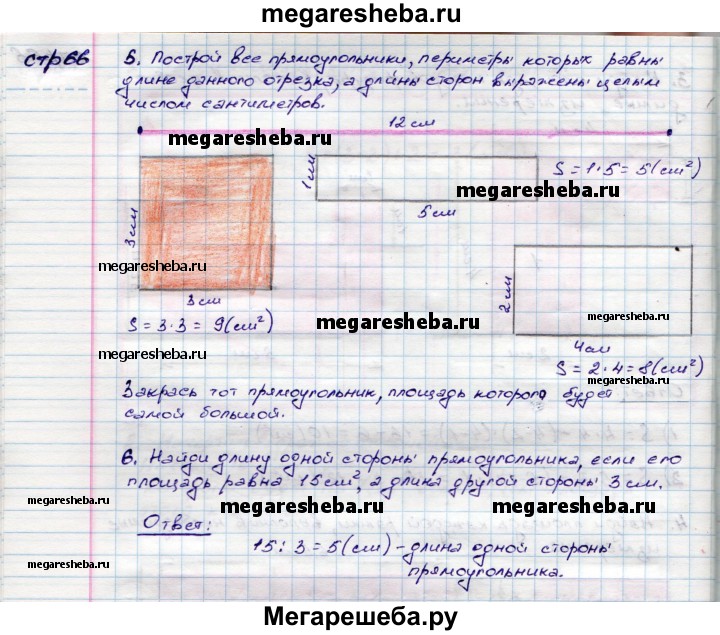 megaresheba.ru
стр66
5. Построй все прямоугольники, периметры которых равны
длине данного отрезка, а длины сторон выражены целым
числом сантиметров.
12 см
megaresheba.ru
1 см
S = 1·5 = 5(см²)
megaresheba.ru
5 см
3 см
megaresheba.ru
3 см
S = 3·3 = 9(см²)
megaresheba.ru
2 см
megaresheba.ru
4 см
S = 2·4 = 8(см²)
megaresheba.ru
megaresheba.ru
Закрась тот прямоугольник, площадь которого будет
самой большой.
6. Найди длину одной стороны прямоугольника, если его
площадь равна 15 см², а длина другой стороны 3 см.
megaresheba.ru
megaresheba.ru
megaresheba.ru
Ответ:
15 : 3 = 5(см) – длина одной стороны
прямоугольника.
megaresheba.ru
Мегарешеба.ру